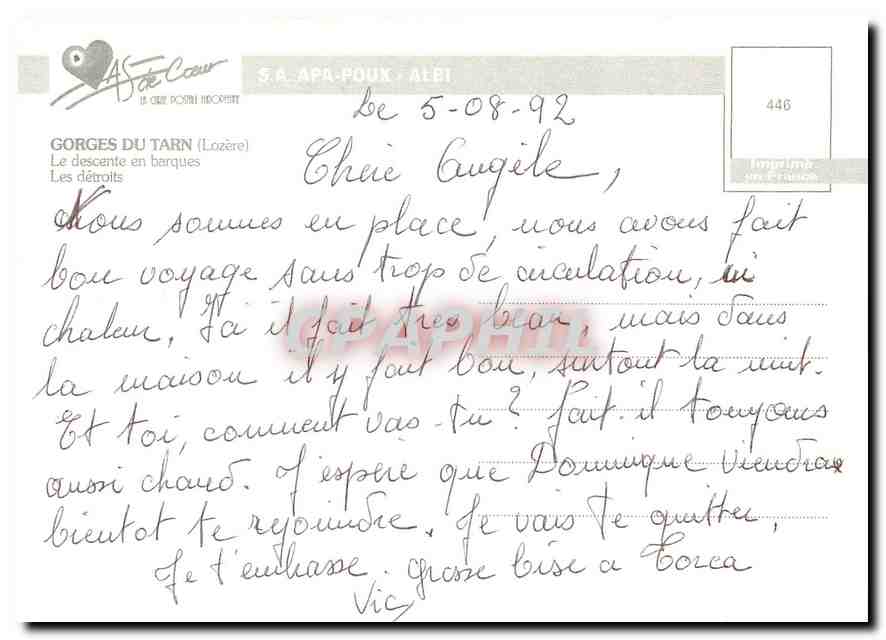 AS de Cœur
LA CARTE POSTALE EUROPEENNE
S.A. APA-POUX - ALBI
446
Imprimé
en France
GORGES DU TARN (Lozère)
Le descente en barques
Les détroits
Le 5-08-92
Chère Angèle,
Nous sommes en place, nous avons fait
bon voyage sans trop de circulation, ni
chaleur. Ici il fait très beau, mais dans
la maison il y fait bon, surtout la nuit.
Et toi, comment vas-tu ? Fait-il toujours
aussi chaud. J'espère que Dominique viendra
bientot te rejoindre. Je vais te quitter,
Je t'embrasse. grosse bise a Torca
Vic
CPAPHIL